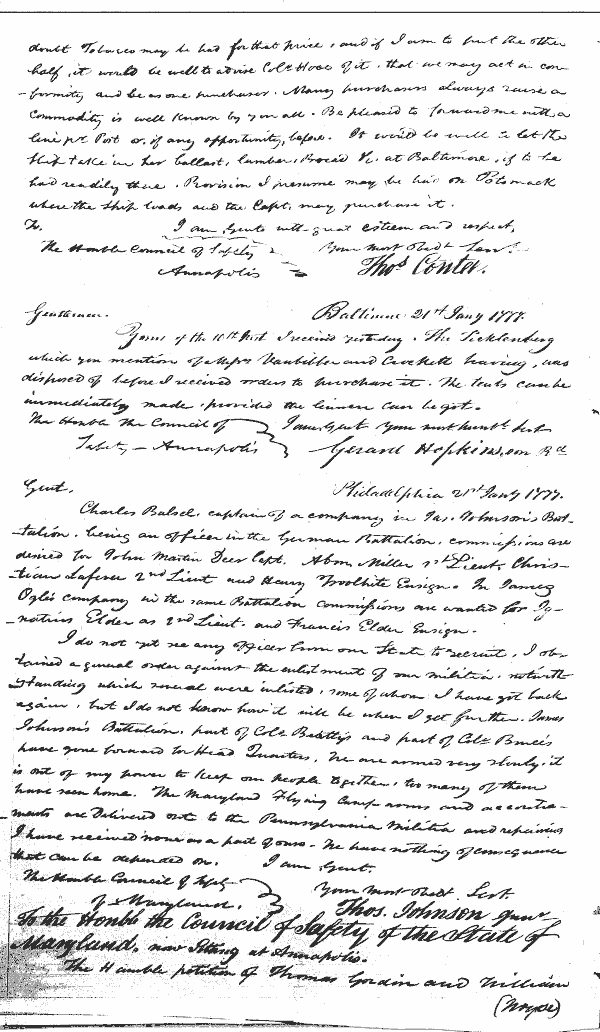 doubt Tobacco may be had for that price, and if I am to put the other
half, it would be well to advise Colo. Hooe of it, that we may act in con-
-formity and be as one purchaser. Many purchasers always raise a
commodity is well known by you all. Be pleased to forward me with a
line pr. Post or, if any opportunity, before. It would be well to let the
Ship take in her ballast, lumber, &c. at Baltimore, if to be
had readily there. Provision I presume may be had on Potomack
where the Ship loads and the Capt. may purchase it.
To. I am Gents with great esteem and respect,
The Honble Council of Safety Your most Obedt. Servt.
Annapolis Thos. Contee.
Gentlemen. Baltimore 21st Jany 1777.
Yours of the 10th Inst I received yesterday. The Ticklenberg
which you mention of Messrs Vanbibber and Crockett having, was
disposed of before I received orders to purchase it. The tents can be
immediately made, provided the linnen can be got.
The Honble The Council of I am Gent. Your most humbl. Sert.
Safety - Annapolis Gerard Hopkins, son Rd
Gent. Philadelphia 21st Jany 1777.
Charles Balsel, captain of a company in Jas. Johnson's Bat-
-talion, being an officer in the German Battalion, commissions are
desired for John Martin Deer Capt. Abm. Miller 1st Lieut, Chris-
-tian Lafever 2nd Lieut and Henry Ensign. In James
Ogle's company in the same Battalion commissions are wanted for Ig-
-natius Elder as 2nd Lieut. and Francis Elder Ensign.
I do not yet see any officer from our State to recruit, I ob-
tained a general order against the enlistment of our militia, notwith-
-standing which several were inlisted, some of whom I have got back
again, but I do not know how it will be when I get further. James
Johnson's Battalion, part of Colo. Beatty's and part of Colo. Bruce's
have gone forward to Head Quarters. We are armed very slowly, it
is out of my power to keep our people together, too many of them
have seen home. The Maryland Flying Camp arms and accoutre-
ments are Delivered out to the Pennsylvania Militia and repairing
I have received none as a part of ours. We have nothing of consequence
that can be depended on. I am Gent.
The Honble Council of Safety Your Most Obedt. Sert.
of Maryland. Thos. Johnson Junr
To the Honble the Council of Safety of the State of
Maryland, now Sitting at Annapolis.
The Humble petition of Thomas Gordin and William
(Noyse)